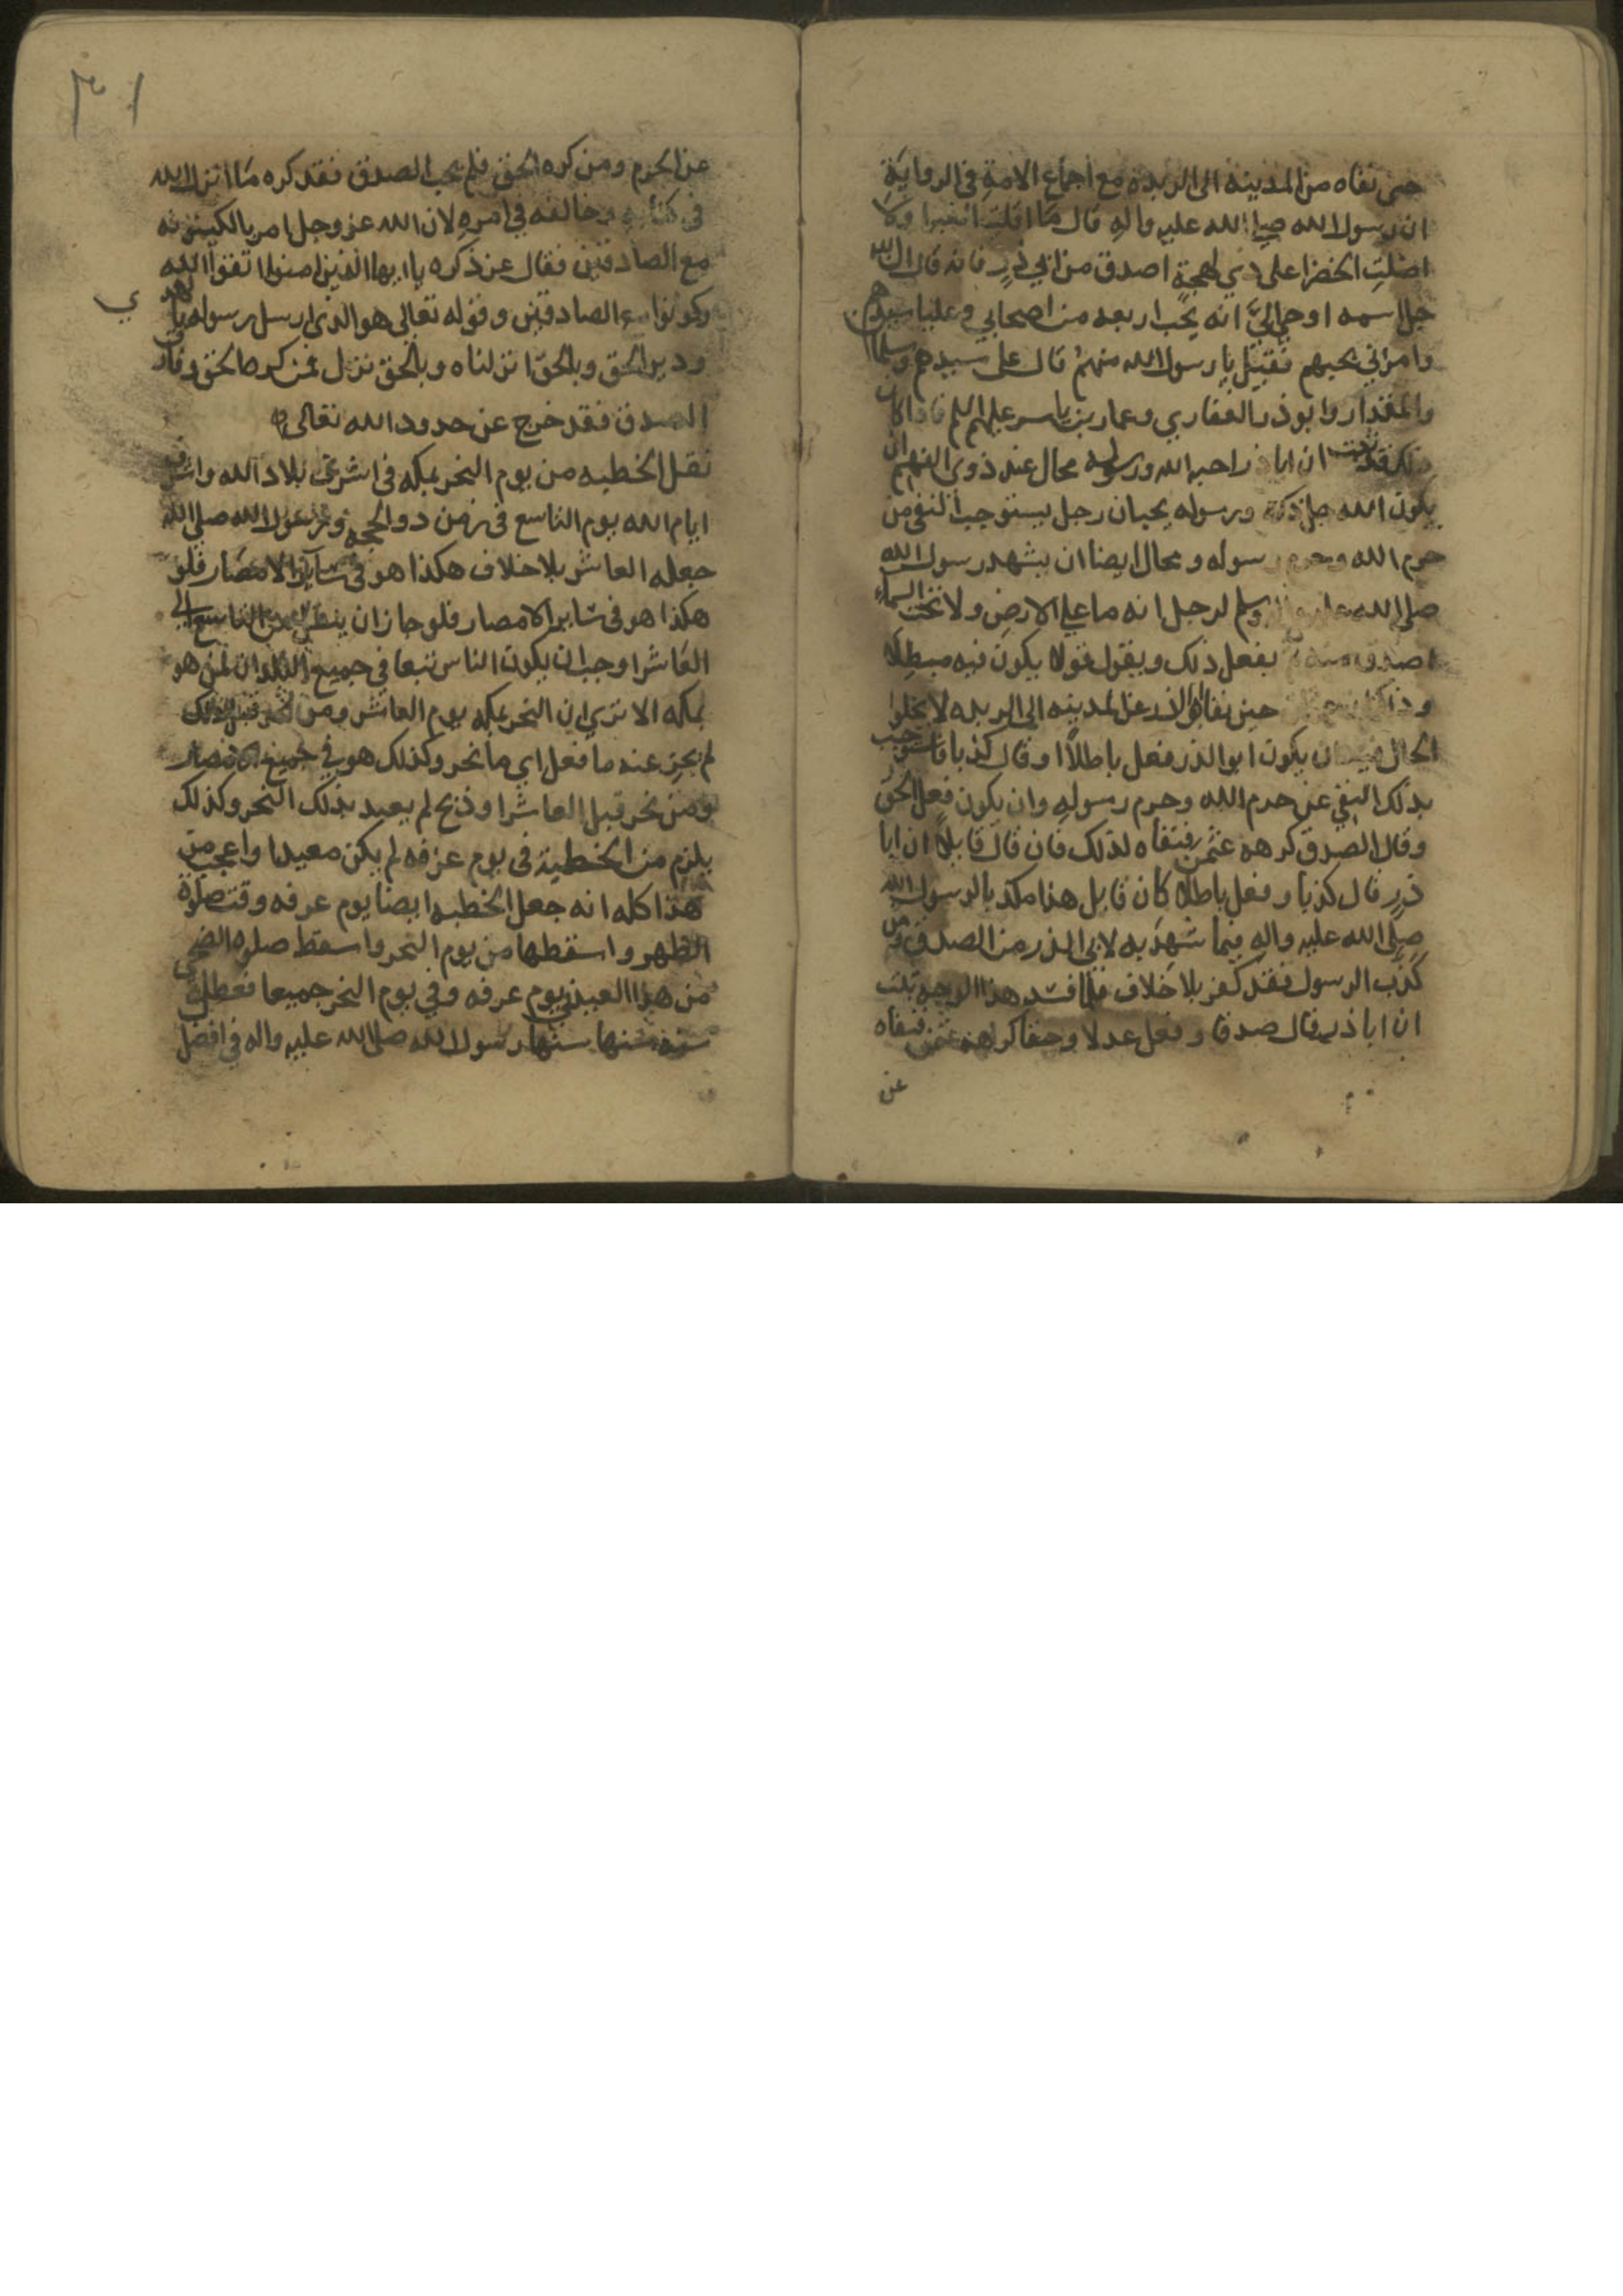 حتى نفاه من المدينة الى الربذه مع اجماع الامة في الرواية
ان رسول الله صلى الله عليه واله قال ما اقلت الغبرا ولا
اضلت الخضرا على ذي لهجة اصدق من ابي ذر فانه قال ان الله
جل اسمه اوحى اليّ انه يحب اربعه من اصحابي وعليا سيدهم
وامرني بحبهم فقيل يا رسول الله منهم قال علي سيدهم وسلمان
والمقداد وابو ذر الغفاري وعمار بن ياسر عليهم السلم فاذا كان
ذلك فقد ان ابا ذر احبه الله ورسوله محال عند ذوى الفهم ان
يكون الله جل ذكره ورسوله يحبان رجل يستوجب النفي من
حرم الله وحرم رسوله ومحال ايضا ان يشهد رسول الله
صلى الله عليه واله وسلم لرجل انه ما على الارض ولا تحت السماء
اصدق منه يفعل ذلك ويقول قولا يكون فيه مبطلا
حين نفا ابو الذر عن المدينه الى الربذه لا يخلوا
الحال من ان يكون ابو الذر فعل باطلاً او قال كذبا فاستوجب
بذلك النفي عن حرم الله وحرم رسوله وان يكون فعل الحق
وقال الصدق كرهه عثمن فنفاه لذلك فان قال قايلاً ان ابا
ذر قال كذبا وفعل باطلا كان قايل هذا مكذبا لرسول الله
صلى الله عليه واله فيما شهد به لابي الذر من الصدق ومن
كذب الرسول فقد كفر بلا خلاف فلما فسد هذا الوجه ثبت
ان ابا ذر قال صدقا وفعل عدلا وحقا كراهه عثمن فنفاه
عن
٣١
عن الحرم ومن كره الحق فلم يحب الصدق فقد كره ما انزل الله
في كتابه وخالفه في امره لان الله عز وجل امر بالكينونه
مع الصادقين فقال عز ذكره يا ايها الذين امنوا اتقوا الله
وكونوا مع الصادقين وقوله تعالى هو الذي ارسل رسوله بالهدى
ودين الحق وبالحق انزلناه وبالحق نزل فمن كره الحق
الصدق فقد خرج عن حدود الله تعالى
نقل الخطبه من يوم النحر بمكه في اشرف بلاد الله واشرف
ايام الله يوم التاسع في زمن ذو الحجه ورسول الله صلى الله
جعله العاشر بلا خلاف هكذا هو في ساير الامصار فلو
هكذا هو في ساير الامصار فلو جاز ان ينقل من التاسع الى
العاشر اوجب ان يكون الناس تبعا في جميع البلدان لمن هو
بمكه الا ترى ان النحر بمكه يوم العاشر ومن نحر قبل ذلك
لم يجز عنه ما فعل اي ما نحر وكذلك هو في جميع الامصار
ومن نحر قبل العاشر او ذبح لم يعيد بذلك النحر وكذلك
يلزم من الخطبة في يوم عرفه لم يكن معيدا واعجب من
هذا كله انه جعل الخطبه ايضا يوم عرفه وقت صلوة
الظهر واسقطها من يوم النحر واسقط صلوه الضحى
من هذا العيد في يوم عرفه وفي يوم النحر جميعا فعطل
سنة سنها رسول الله صلى الله عليه واله في افضل